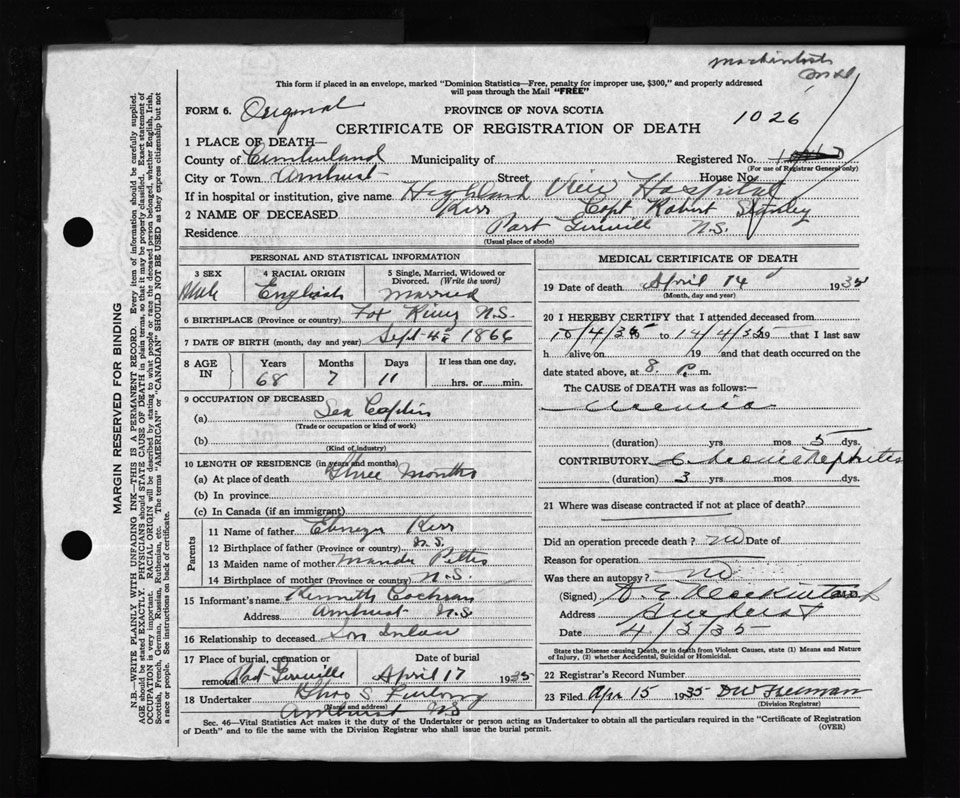 Mackintosh
This form if placed in an envelope, marked "Dominion Statistics—Free, penalty for improper use, $300," and properly addressed
will pass through the Mail "FREE"
FORM 6. Original PROVINCE OF NOVA SCOTIA
CERTIFICATE OF REGISTRATION OF DEATH 1026
1 PLACE OF DEATH—
County of Cumberland Municipality of Registered No.
(For use of Registrar General only)
City or Town Amherst Street House No.
If in hospital or institution, give name Highland View Hospital
2 NAME OF DECEASED Kerr Capt Robert Stanley
Residence Port Greville N.S.
(Usual place of abode)
PERSONAL AND STATISTICAL INFORMATION
3 SEX 4 RACIAL ORIGIN 5 Single, Married, Widowed or Divorced. (Write the word)
Male English Married
6 BIRTHPLACE (Province or country) Fox River N.S.
7 DATE OF BIRTH (month, day and year) Sept 4th 1866
8 AGE IN Years Months Days If less than one day,
68 7 11 hrs. or min.
9 OCCUPATION OF DECEASED
(a) Sea Captin
(Trade or occupation or kind of work)
(b)
(Kind of industry)
10 LENGTH OF RESIDENCE (in years and months)
(a) At place of death Three Months
(b) In province
(c) In Canada (if an immigrant)
Parents
11 Name of father Ebenezer Kerr
12 Birthplace of father (Province or country) N.S.
13 Maiden name of mother Pettis
14 Birthplace of mother (Province or country) N.S.
15 Informant's name Kenneth Cochran
Address Amherst N.S.
16 Relationship to deceased Son Inlaw
17 Place of burial, cremation or removal Date of burial
Port Greville April 17 1935
18 Undertaker Thos S Furlong
(Name and address)
Amherst NS
MEDICAL CERTIFICATE OF DEATH
19 Date of death April 14 1935
(Month, day and year)
20 I HEREBY CERTIFY that I attended deceased from
10/4/35 19 to 14/4/35 19 that I last saw
h alive on 19 and that death occurred on the
date stated above, at 8 P. m.
The CAUSE of DEATH was as follows:—
Uraemia
(duration) yrs. mos 5 dys.
CONTRIBUTORY Chronic Nephritis
(duration) 3 yrs. mos. dys.
21 Where was disease contracted if not at place of death?
Did an operation precede death? no Date of
Reason for operation
Was there an autopsy? no
(Signed) Mackintosh M.D.
Address Amherst
Date 4/5/35
State the Disease causing Death, or in death from Violent Causes, state (1) Means and Nature of Injury, (2) whether Accidental, Suicidal or Homicidal.
22 Registrar's Record Number
23 Filed Apr 15 1935 DW Freeman
(Division Registrar)
Sec. 46—Vital Statistics Act makes it the duty of the Undertaker or person acting as Undertaker to obtain all the particulars required in the "Certificate of Registration
of Death" and to file the same with the Division Registrar who shall issue the burial permit. (OVER)
MARGIN RESERVED FOR BINDING
N.B.—WRITE PLAINLY WITH UNFADING INK—THIS IS A PERMANENT RECORD. Every item of information should be carefully supplied.
AGE should be stated EXACTLY. PHYSICIANS should STATE CAUSE OF DEATH in plain terms, so that it may be properly classified. Exact statement of
OCCUPATION is very important. RACIAL ORIGIN will be described by stating to what people or race the deceased person belonged, whether English, Irish,
Scottish, French, German, Russian, Ruthenian, etc. The terms "AMERICAN" or "CANADIAN" SHOULD NOT BE USED as they express citizenship but not
a race or people. See instructions on back of certificate.